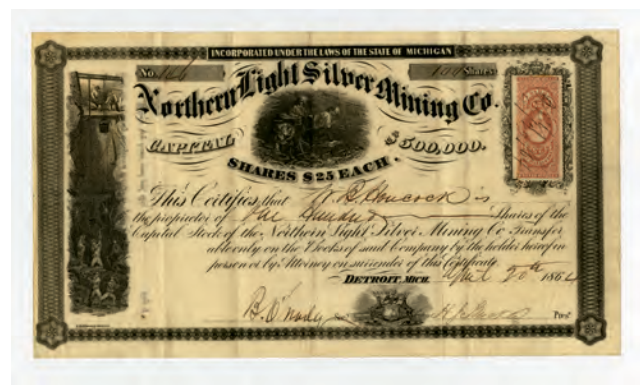 INCORPORATED UNDER THE LAWS OF THE STATE OF MICHIGAN
No. 100 Shares
Northern Light Silver Mining Co.
CAPITAL $500,000.
SHARES $25 EACH.
This Certifies that W. B. Hancock is
the proprietor of One Hundred Shares of the
Capital Stock of the Northern Light Silver Mining Co Transfer
able only on the Books of said Company by the holder hereof in
person or by Attorney on surrender of this Certificate.
DETROIT, MICH. April 20th 186
Sec Prest